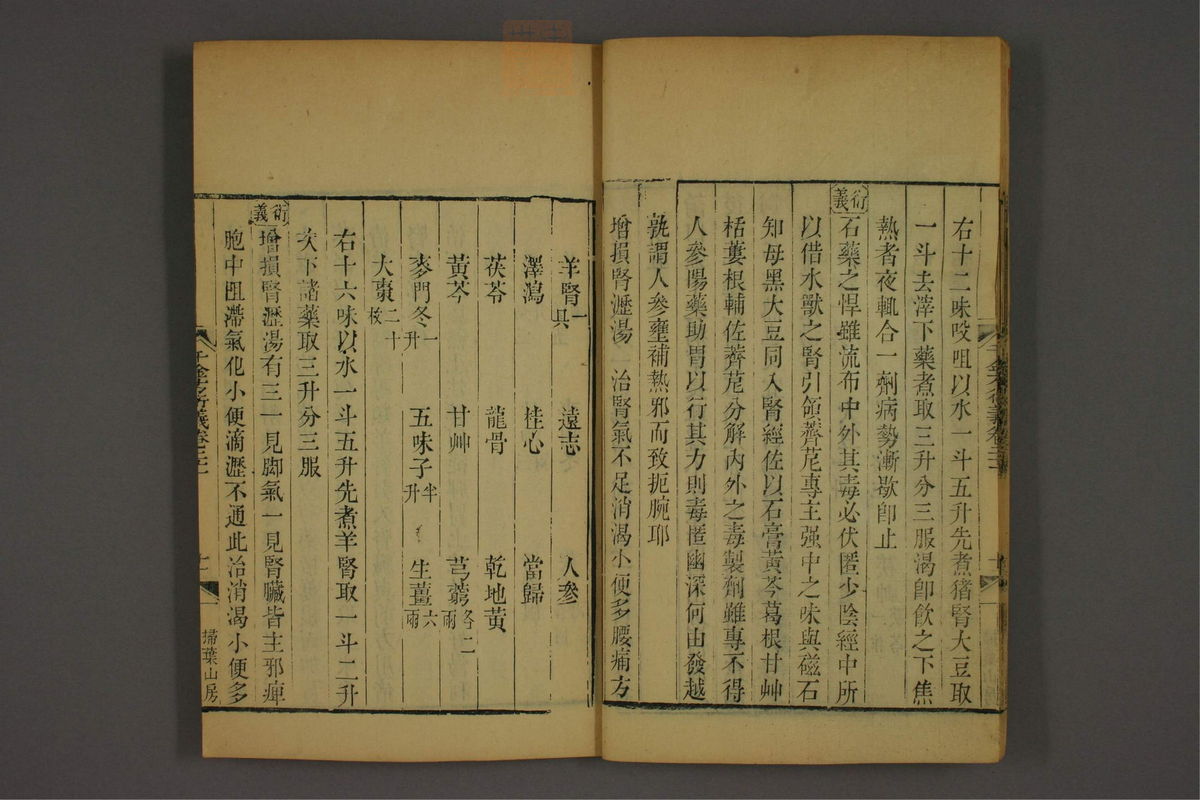 右十二味㕮咀以水一斗五升先煮猪腎大豆取
一斗去滓下藥煮取三升分三服渴卽飲之下焦
熱者夜輒合一劑病勢漸歇卽止
衍義
石藥之悍雖流布中外其毒必伏匿少陰經中所
以借水獸之腎引領薺苨專主强中之味與磁石
知母黑大豆同入腎經佐以石膏黃芩葛根甘艸
栝蔞根輔佐薺苨分解內外之毒製劑雖專不得
人參陽藥助胃以行其力則毒匿幽深何由發越
孰謂人參壅補熱邪而致扼腕耶
增損腎瀝湯 治腎氣不足消渴小便多腰痛方
羊腎一具 遠志 人參
澤瀉 桂心 當歸
茯苓 龍骨 乾地黃
黃芩 甘艸 芎藭各二兩
麥門冬一升 五味子半升 生薑六兩
大棗二十枚
右十六味以水一斗五升先煮羊腎取一斗二升
次下諸藥取三升分三服
衍義
增損腎瀝湯有三一見脚氣一見腎臟皆主邪痺
胞中阻滯氣化小便滴瀝不通此治消渴小便多
千金方衍義卷二十一
十一
掃葉山房